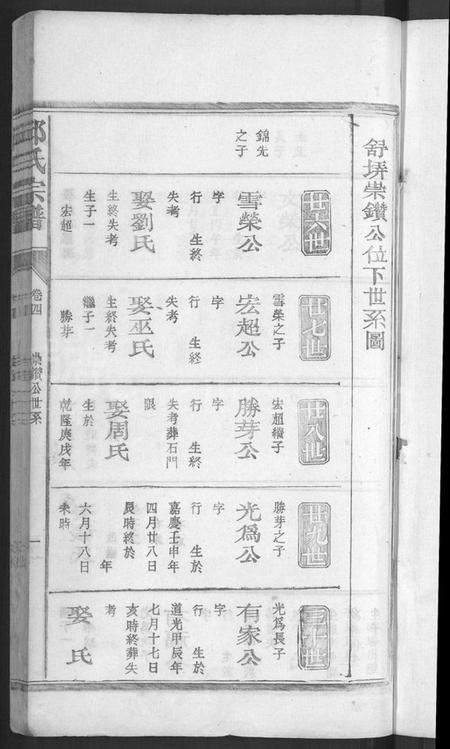 舒塝崇鑽公位下世系圖
廿六世
錦先
之子
雪榮公
字
行 生終
失考
娶劉氏
生終失考
生子一
宏超
廿七世
雪榮之子
宏超公
字
行 生終
失考
娶巫氏
生終失考
繼子一
勝芽
廿八世
宏超繼子
勝芽公
字
行 生終
失考葬石門
限
娶周氏
生於
乾隆庚戌年
廿九世
勝芽之子
光為公
字
行 生於
嘉慶壬申年
四月廿八日
辰時終於
年
六月十八日
未時
三十世
光為長子
有家公
字
行 生於
道光甲辰年
七月十七日
亥時終葬失
考
娶 氏
氏宗譜
卷四
鑽公世系
一